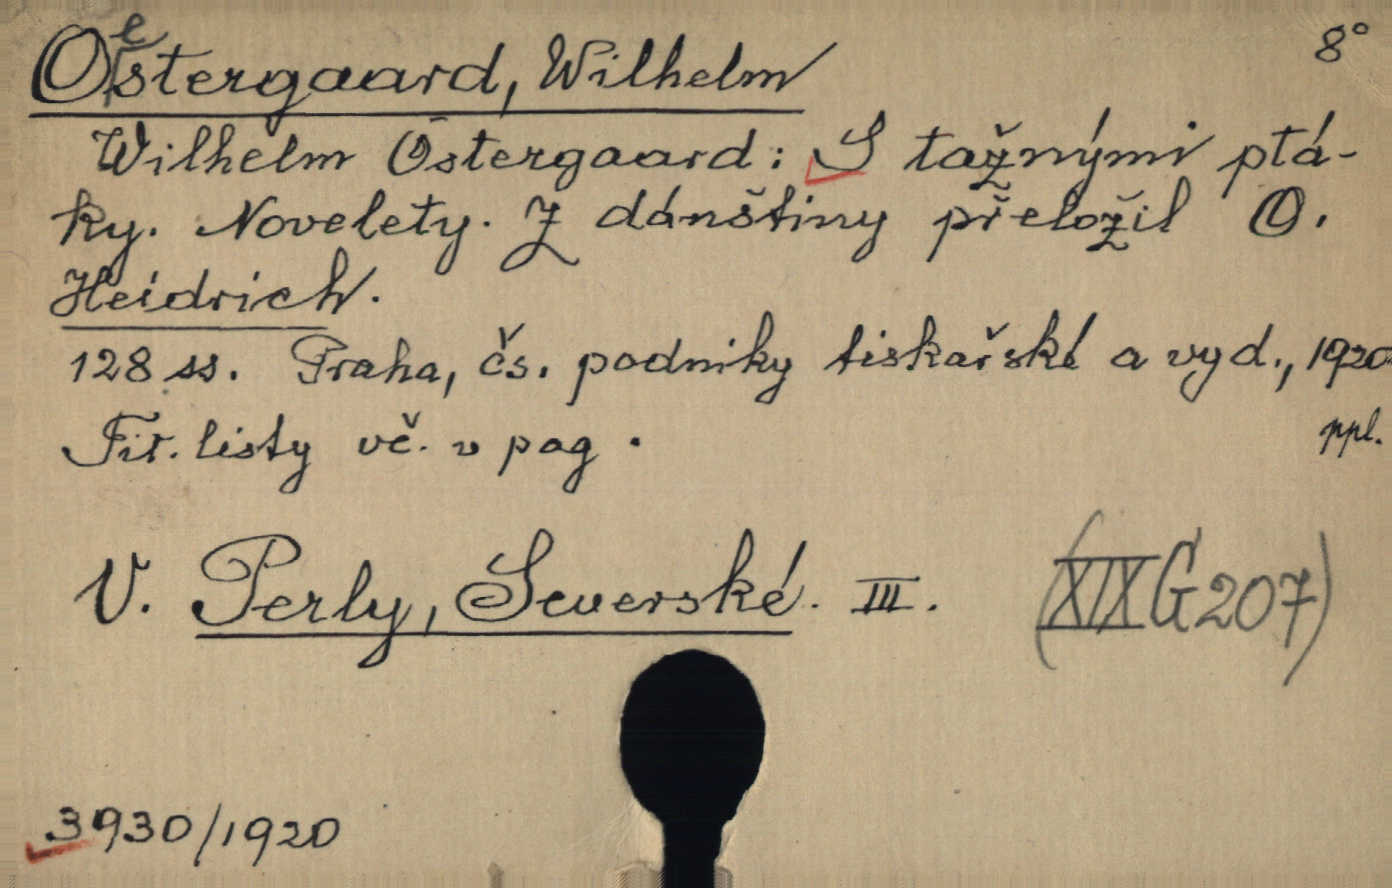 Oestergaard, Wilhelm 8°
Wilhelm Östergaard: S tažnými ptá-
ky. Novelety. Z dánštiny přeložil O.
Heidrich.
128 ss. Praha, čs. podniky tiskařské a vyd., 1920
Tit. listy vč. v pag. ppl.
V. Perly, Severské. III. (XIX G 207)
3930/1920